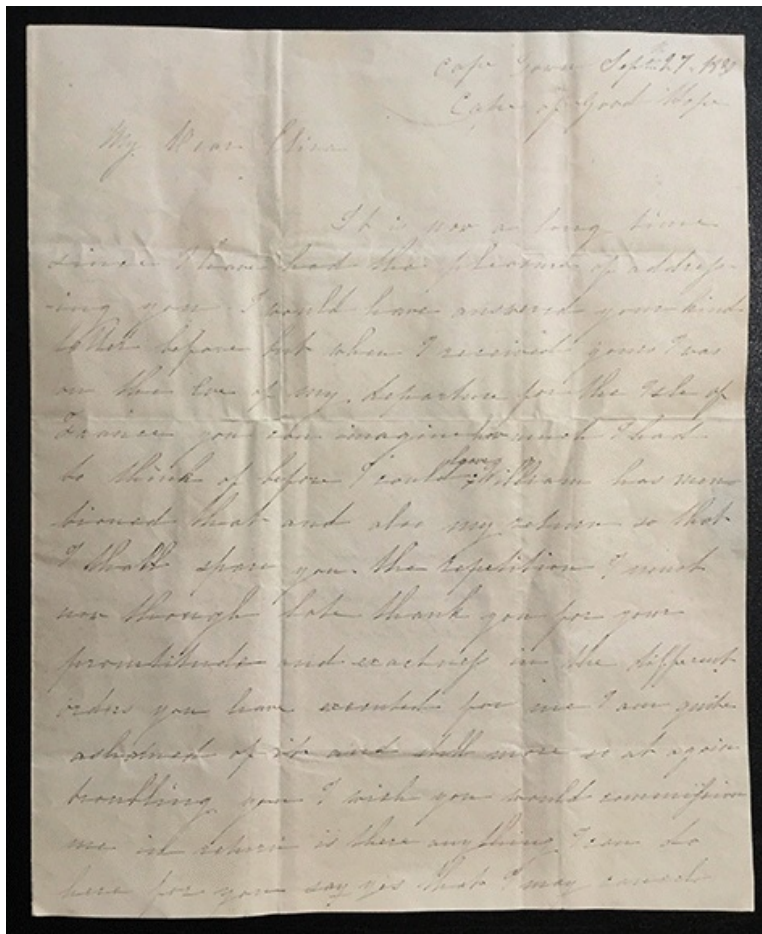 Cape Town Septr 27.
Cape of Good Hope
My Dear Eliza
It is now a long time
since I have had the pleasure of address-
-ing you I would have answered your kind
letter before but when I received yours I was
on the Eve of my departure for the Isle of
France you can imagine how much I had
to think of before I could William has men
tioned that and also my return so that
I shall spare you the repetition I must
now though late thank you for your
promtitude and exactness in the different
orders you have executed for me I am quite
ashamed of it and still more so at again
troubling you I wish you would commission
me in return is there any thing I can do
here for you say yes that I may